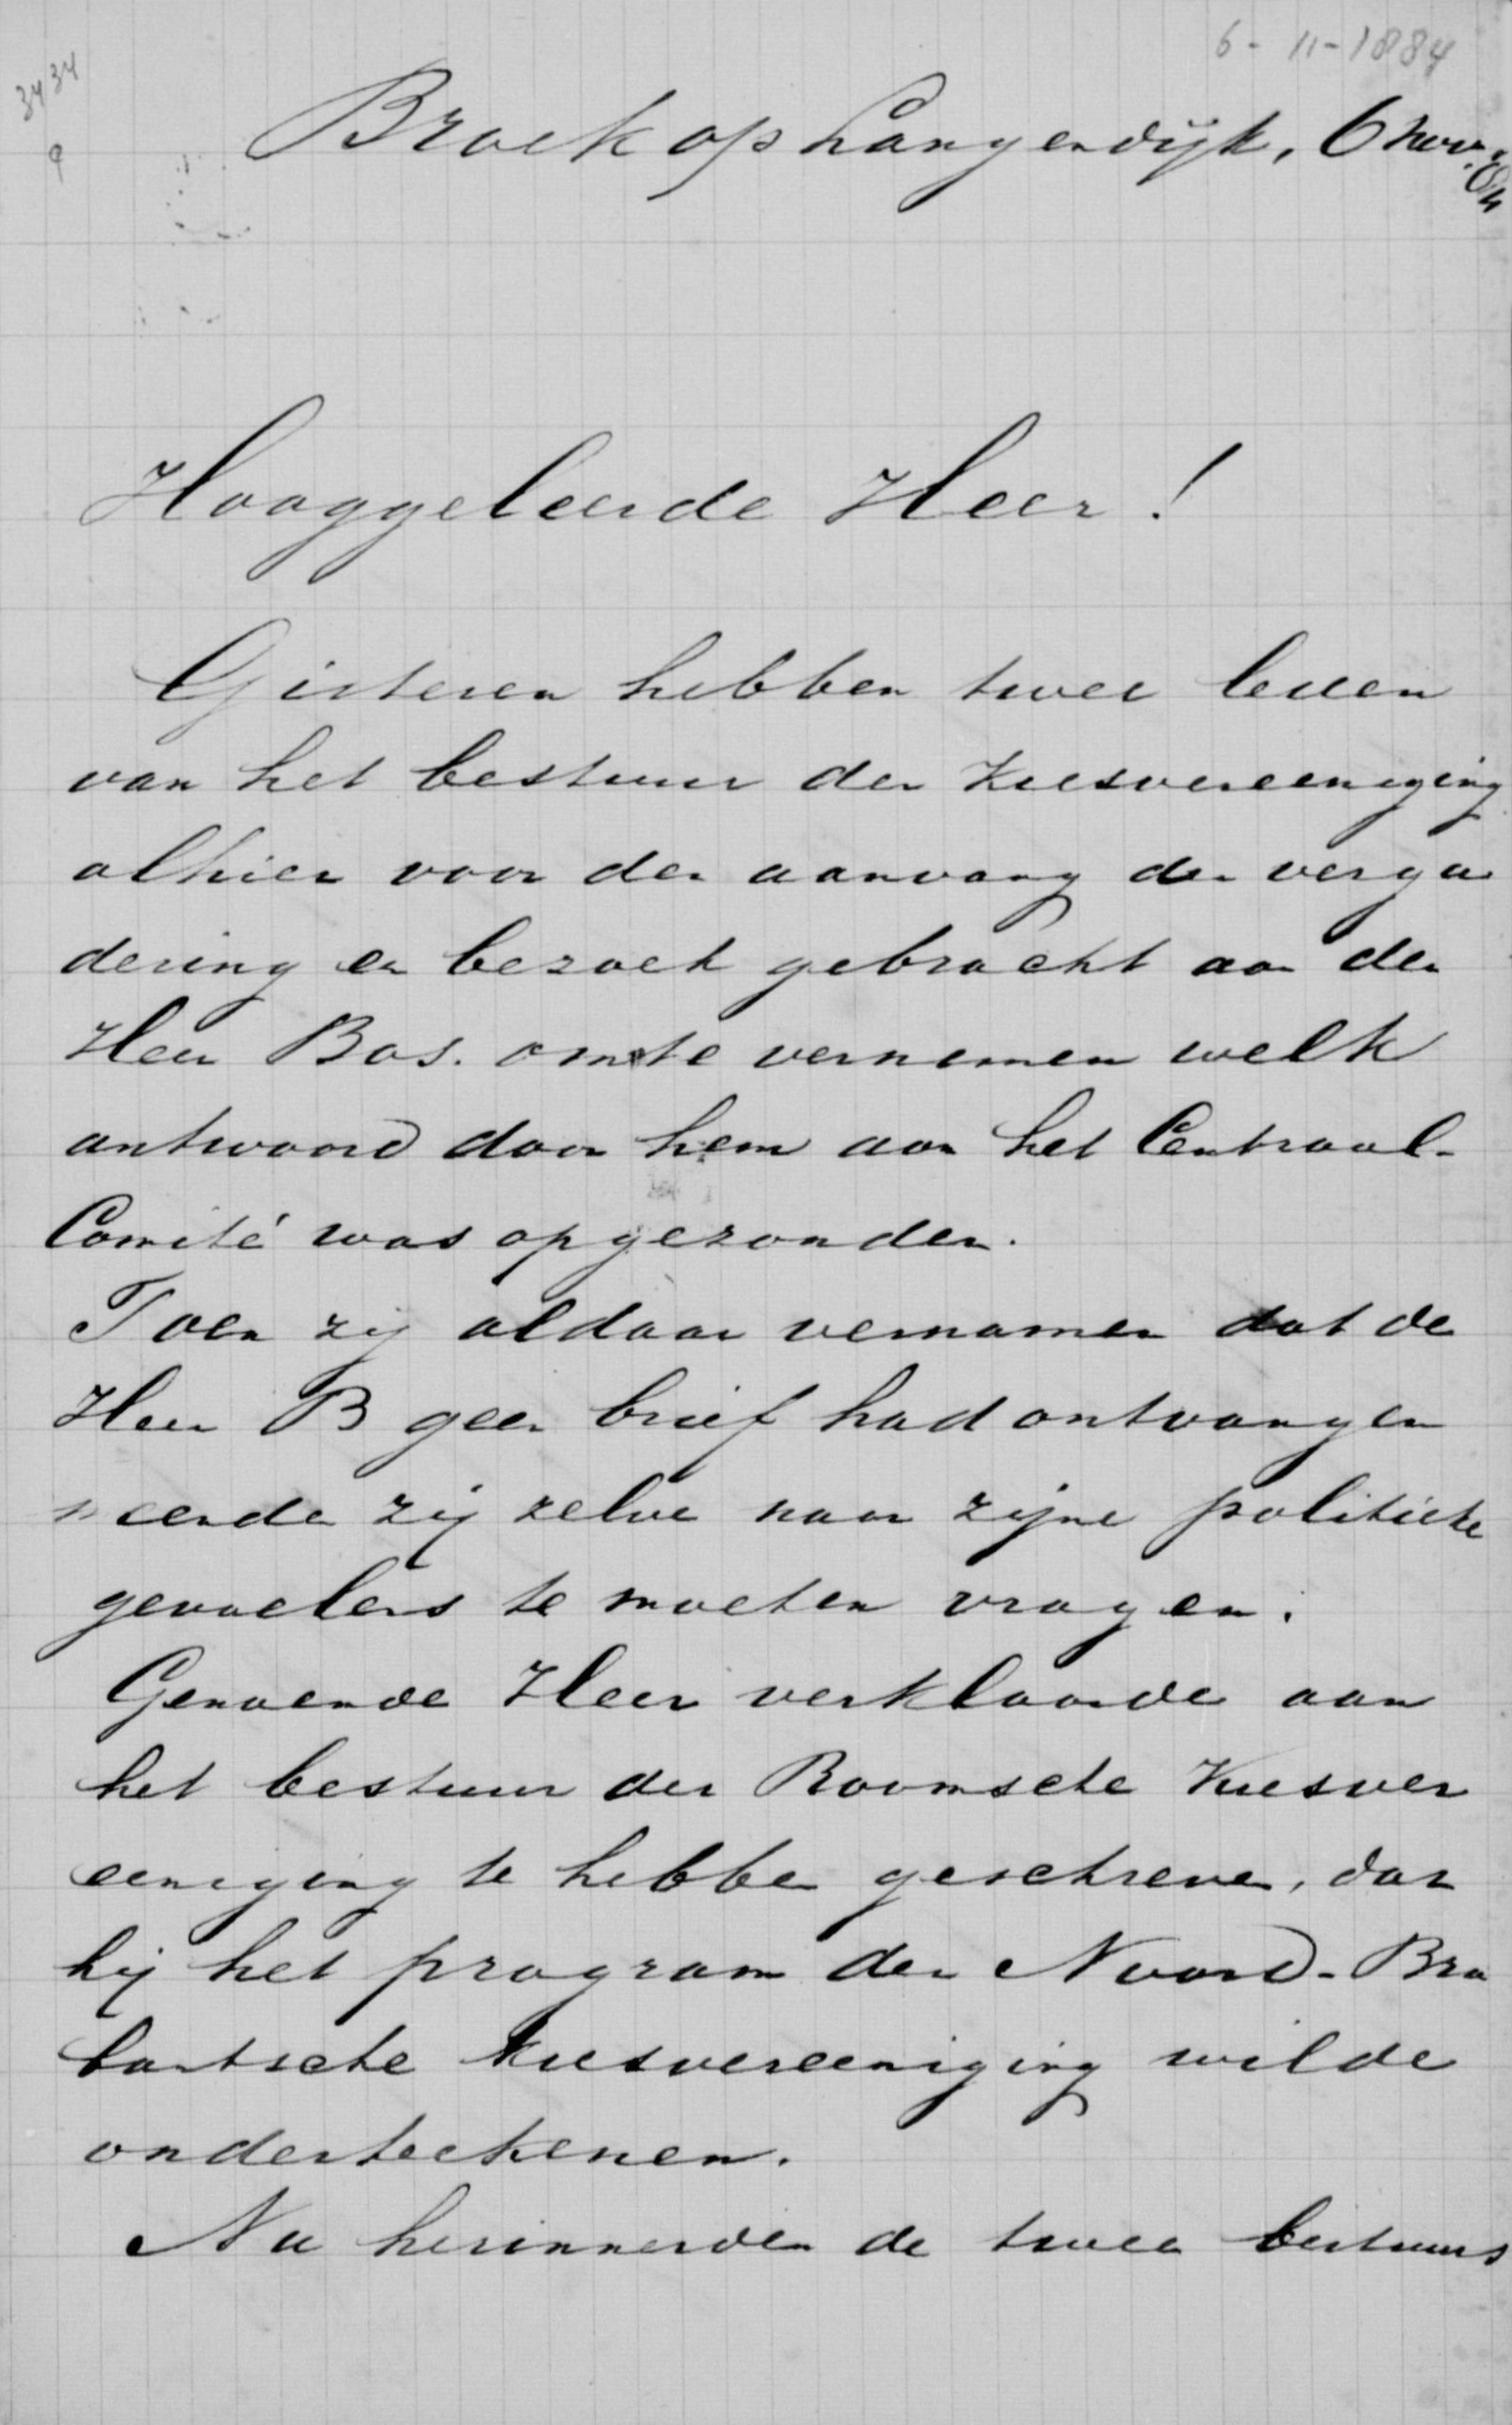 6-11-1884
3434
9
Broek op Langendijk, 6 Nov. 84
Hooggeleerde Heer!
Gisteren hebben twee leden
van het bestuur der Kiesvereeniging
alhier voor den aanvang der verga
dering een bezoek gebracht aan den
Heer Bos. om te vernemen welk
antwoord door hem aan het Centraal-
Comité was opgezonden.
Toen zij aldaar vernamen dat de
Heer B geen brief had ontvangen
meenden zij zelve naar zijne politieke
gevoelens te moeten vragen.
Genoemde Heer verklaarde aan
het bestuur der Roomsche Kiesver
eeniging te hebben geschreven, dat
hij het program der Noord-Bra
bantsche Kiesvereeniging wilde
onderteekenen.
Nu herinnerden de twee bestuurs